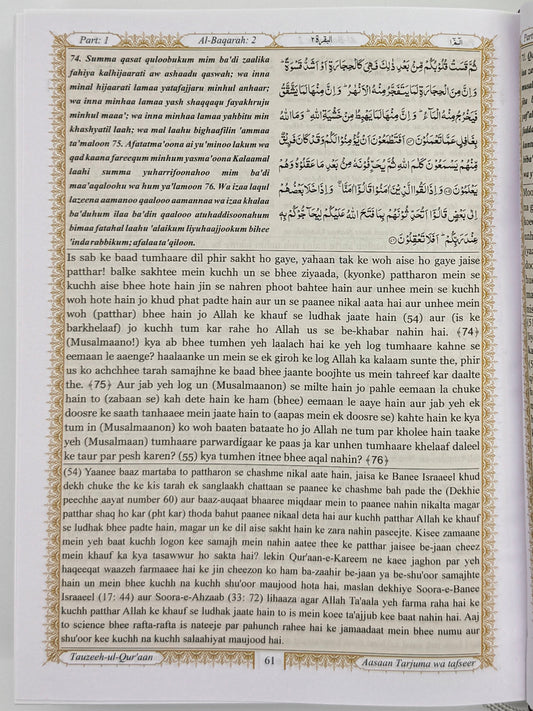 Part: 1
Al-Baqarah: 2
البقرة ٢
الٓمّٓ ١
Part
74. Summa qasat quloobukum mim ba'di zaalika
fahiya kalhijaarati aw ashaadu qaswah; wa inna
minal hijaarati lamaa yatafajjaru minhul anhaar;
wa inna minhaa lamaa yash shaqqaqu fayakhruju
minhul maaa'; wa inna minhaa lamaa yahbitu min
khashyatil laah; wa mal laahu bighaafilin 'ammaa
ta'maloon 75. Afatatma'oona ai yu'minoo lakum wa
qad kaana fareequm minhum yasma'oona Kalaamal
laahi summa yuharrifoonahoo mim ba'di
maa'aqaloohu wa hum ya'lamoon 76. Wa izaa laqul
lazeena aamanoo qaalooo aamannaa wa izaa khalaa
ba'duhum ilaa ba'din qaalooo atuhaddisoonahum
bimaa fatahal laahu 'alaikum liyuhaajjookum bihee
'inda rabbikum; afalaa ta'qiloon.
ثُمَّ قَسَتْ قُلُوْبُكُمْ مِّنْۢ بَعْدِ ذٰلِكَ فَهِيَ كَالْحِجَارَةِ اَوْ اَشَدُّ قَسْوَةً ؕ
وَ اِنَّ مِنَ الْحِجَارَةِ لَمَا يَتَفَجَّرُ مِنْهُ الْاَنْهٰرُ ؕ وَ اِنَّ مِنْهَا لَمَا يَشَّقَّقُ
فَيَخْرُجُ مِنْهُ الْمَآءُ ؕ وَ اِنَّ مِنْهَا لَمَا يَهْبِطُ مِنْ خَشْيَةِ اللّٰهِ ؕ وَمَا اللّٰهُ
بِغَافِلٍ عَمَّا تَعْمَلُوْنَ ۝ اَفَتَطْمَعُوْنَ اَنْ يُّؤْمِنُوْا لَكُمْ وَقَدْ كَانَ فَرِيْقٌ
مِّنْهُمْ يَسْمَعُوْنَ كَلٰمَ اللّٰهِ ثُمَّ يُحَرِّفُوْنَهٗ مِنْۢ بَعْدِ مَا عَقَلُوْهُ وَهُمْ
يَعْلَمُوْنَ ۝ وَ اِذَا لَقُوا الَّذِيْنَ اٰمَنُوْا قَالُوْٓا اٰمَنَّا ۚ وَ اِذَا خَلَا بَعْضُهُمْ
اِلٰى بَعْضٍ قَالُوْٓا اَتُحَدِّثُوْنَهُمْ بِمَا فَتَحَ اللّٰهُ عَلَيْكُمْ لِيُحَآجُّوْكُمْ بِهٖ
عِنْدَ رَبِّكُمْ ؕ اَفَلَا تَعْقِلُوْنَ ۝
Is sab ke baad tumhaare dil phir sakht ho gaye, yahaan tak ke woh aise ho gaye jaise
patthar! balke sakhtee mein kuchh un se bhee ziyaada, (kyonke) pattharon mein se
kuchh aise bhee hote hain jin se nahren phoot bahtee hain aur unhee mein se kuchh
woh hote hain jo khud phat padte hain aur un se paanee nikal aata hai aur unhee mein
woh (patthar) bhee hain jo Allah ke khauf se ludhak jaate hain (54) aur (is ke
barkhelaaf) jo kuchh tum kar rahe ho Allah us se be-khabar nahin hai. ﴾74﴿
(Musalmaano!) kya ab bhee tumhen yeh laalach hai ke yeh log tumhaare kahne se
eemaan le aaenge? haalaanke un mein se ek giroh ke log Allah ka kalaam sunte the, phir
us ko achchhee tarah samajhne ke baad bhee jaante boojhte us mein tahreef kar daalte
the. ﴾75﴿ Aur jab yeh log un (Musalmaanon) se milte hain jo pahle eemaan la chuke
hain to (zabaan se) kah dete hain ke ham (bhee) eemaan le aaye hain aur jab yeh ek
doosre ke saath tanhaaee mein jaate hain to (aapas mein ek doosre se) kahte hain ke kya
tum in (Musalmaanon) ko woh baaten bataate ho jo Allah ne tum par kholee hain taake
yeh (Musalmaan) tumhaare parwardigaar ke paas ja kar unhen tumhaare khelaaf daleel
ke taur par pesh karen? (55) kya tumhen itnee bhee aqal nahin? ﴾76﴿
(54) Yaanee baaz martaba to pattharon se chashme nikal aate hain, jaisa ke Banee Israaeel khud
dekh chuke the ke kis tarah ek sanglaakh chattaan se paanee ke chashme bah pade the (Dekhie
peechhe aayat number 60) aur baaz-auqaat bhaaree miqdaar mein to paanee nahin nikalta magar
patthar shaq ho kar (pht kar) thoda bahut paanee nikaal deta hai aur kuchh patthar Allah ke khauf
se ludhak bhee padte hain, magar un ke dil aise sakht hain ke zara nahin paseejte. Kisee zamaane
mein yeh baat kuchh logon kee samajh mein nahin aatee thee ke patthar jaisee be-jaan cheez
mein khauf ka kya tasawwur ho sakta hai? lekin Qur'aan-e-Kareem ne kaee jaghon par yeh
haqeeqat waazeh farmaaee hai ke jin cheezon ko ham ba-zaahir be-jaan ya be-shu'oor samajhte
hain un mein bhee kuchh na kuchh shu'oor maujood hota hai, maslan dekhiye Soora-e-Banee
Israaeel (17: 44) aur Soora-e-Ahzaab (33: 72) lihaaza agar Allah Ta'aala yeh farma raha hai ke
kuchh patthar Allah ke khauf se ludhak jaate hain to is mein koee ta'ajjub kee baat nahin hai. Aaj
to science bhee rafta-rafta is nateeje par pahunch rahee hai ke jamaadaat mein bhee numu aur
shu'oor kee kuchh na kuchh salaahiyat maujood hai.
Tauzeeh-ul-Qur'aan
61
Aasaan Tarjuma wa tafseer